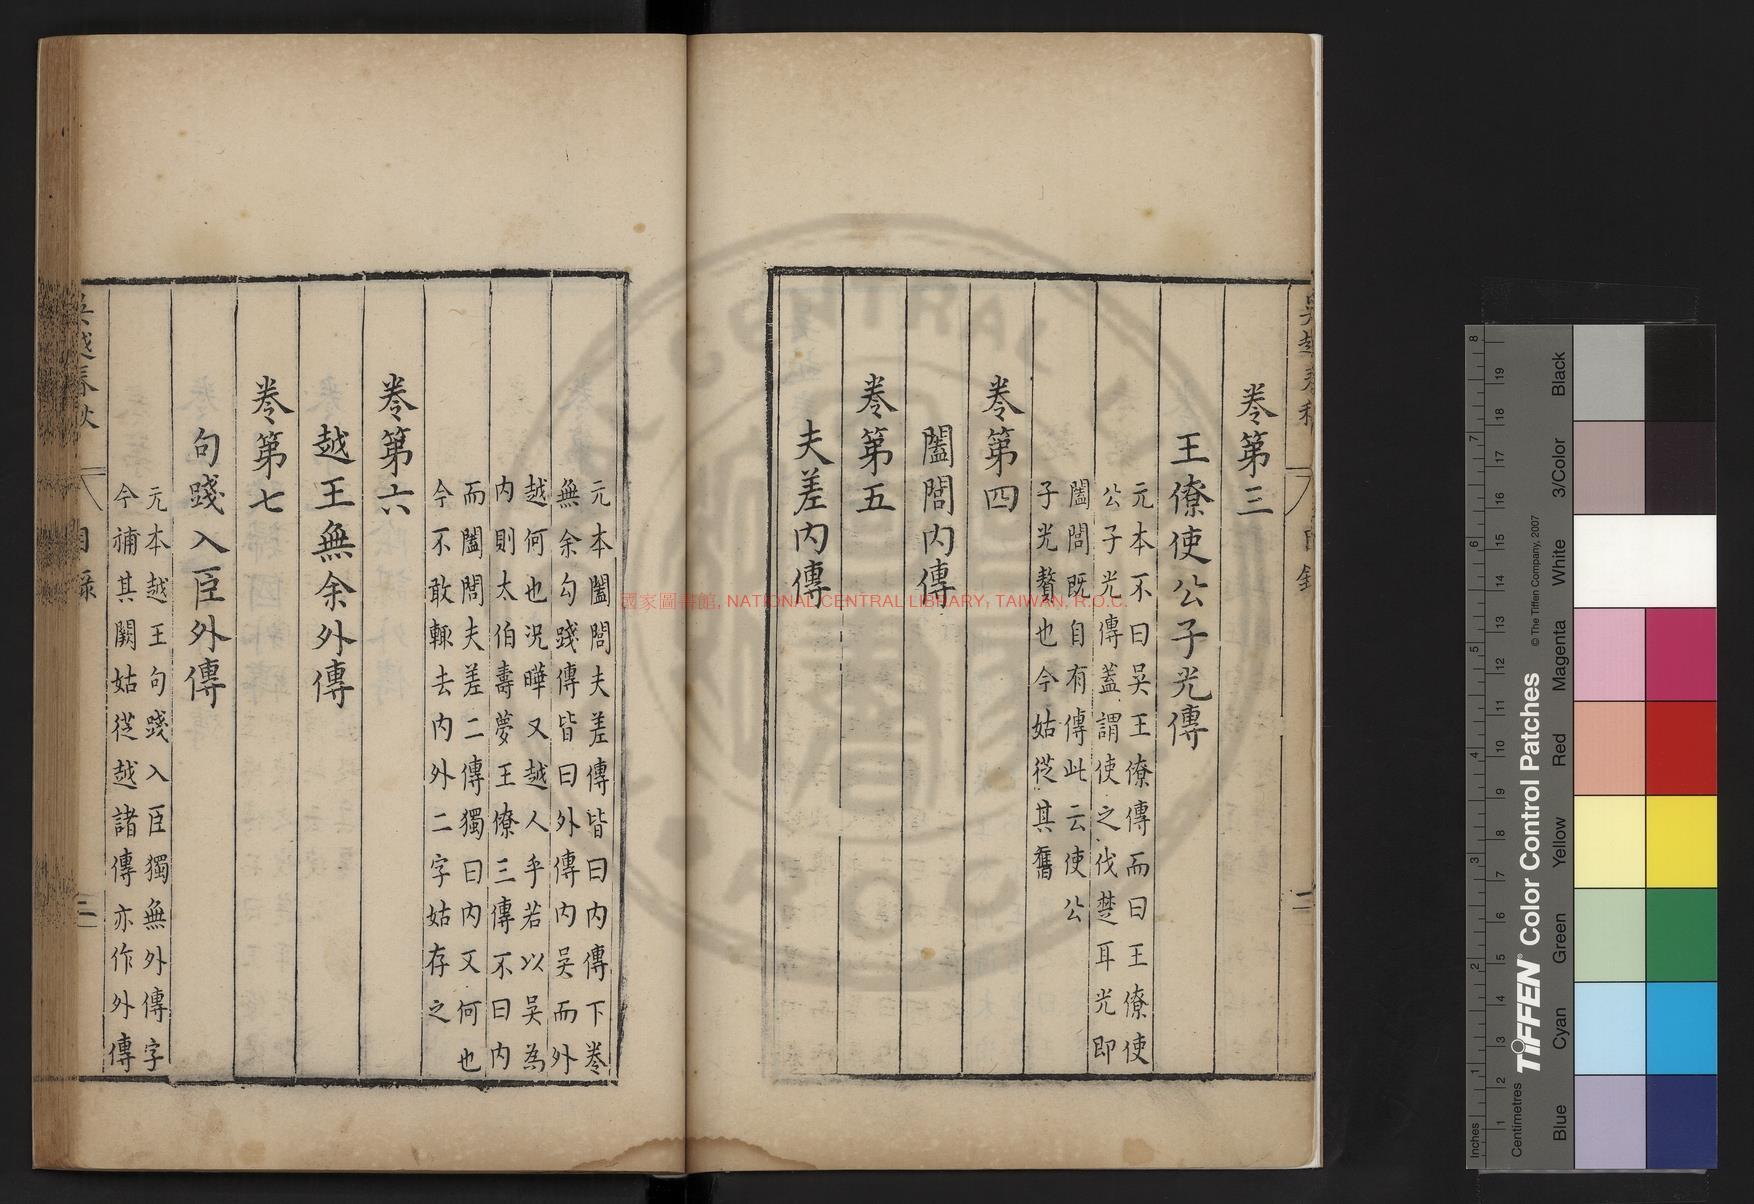 卷第三
王僚使公子光傳
元本不曰吳王僚傳而曰王僚使
公子光傳蓋謂使之伐楚耳光即
闔閭既自有傳此云使公
子光贅也今姑從其舊
卷第四
闔閭内傳
卷第五
夫差内傳
元本闔閭夫差傳皆曰内傳下卷
無余勾踐傳皆曰外傳内吳而外
越何也况曄又越人乎若以吳為
内則太伯壽夢王僚三傳不曰内
而闔閭夫差二傳獨曰内又何也
今不敢輒去内外二字姑存之
卷第六
越王無余外傳
卷第七
句踐入臣外傳
元本越王句踐入臣獨無外傳字
今補其闕姑從越諸傳亦作外傳
吳越春秋
目錄
二
國家圖書館, NATIONAL CENTRAL LIBRARY, TAIWAN, R.O.C.
Inches
Centimetres
TIFFEN® Color Control Patches
© The Tiffen Company, 2007
Blue
Cyan
Green
Yellow
Red
Magenta
White
3/Color
Black